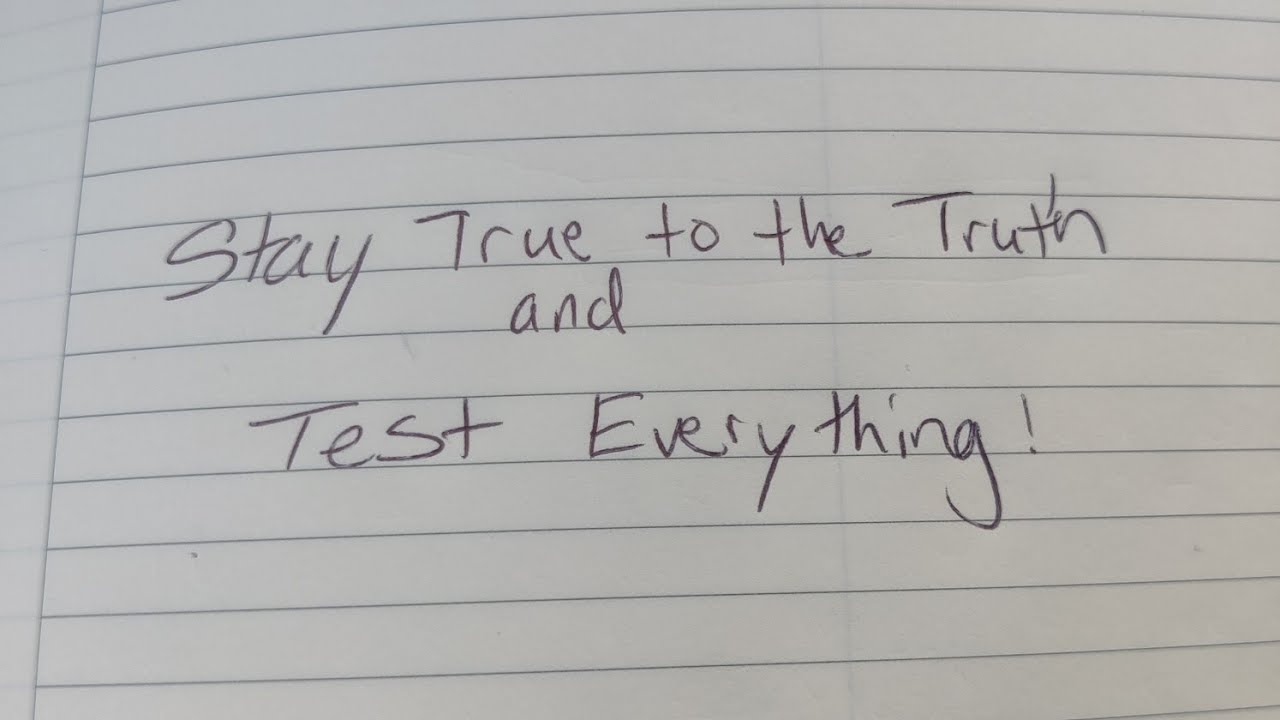 Stay True to the Truth
and
Test Everything!